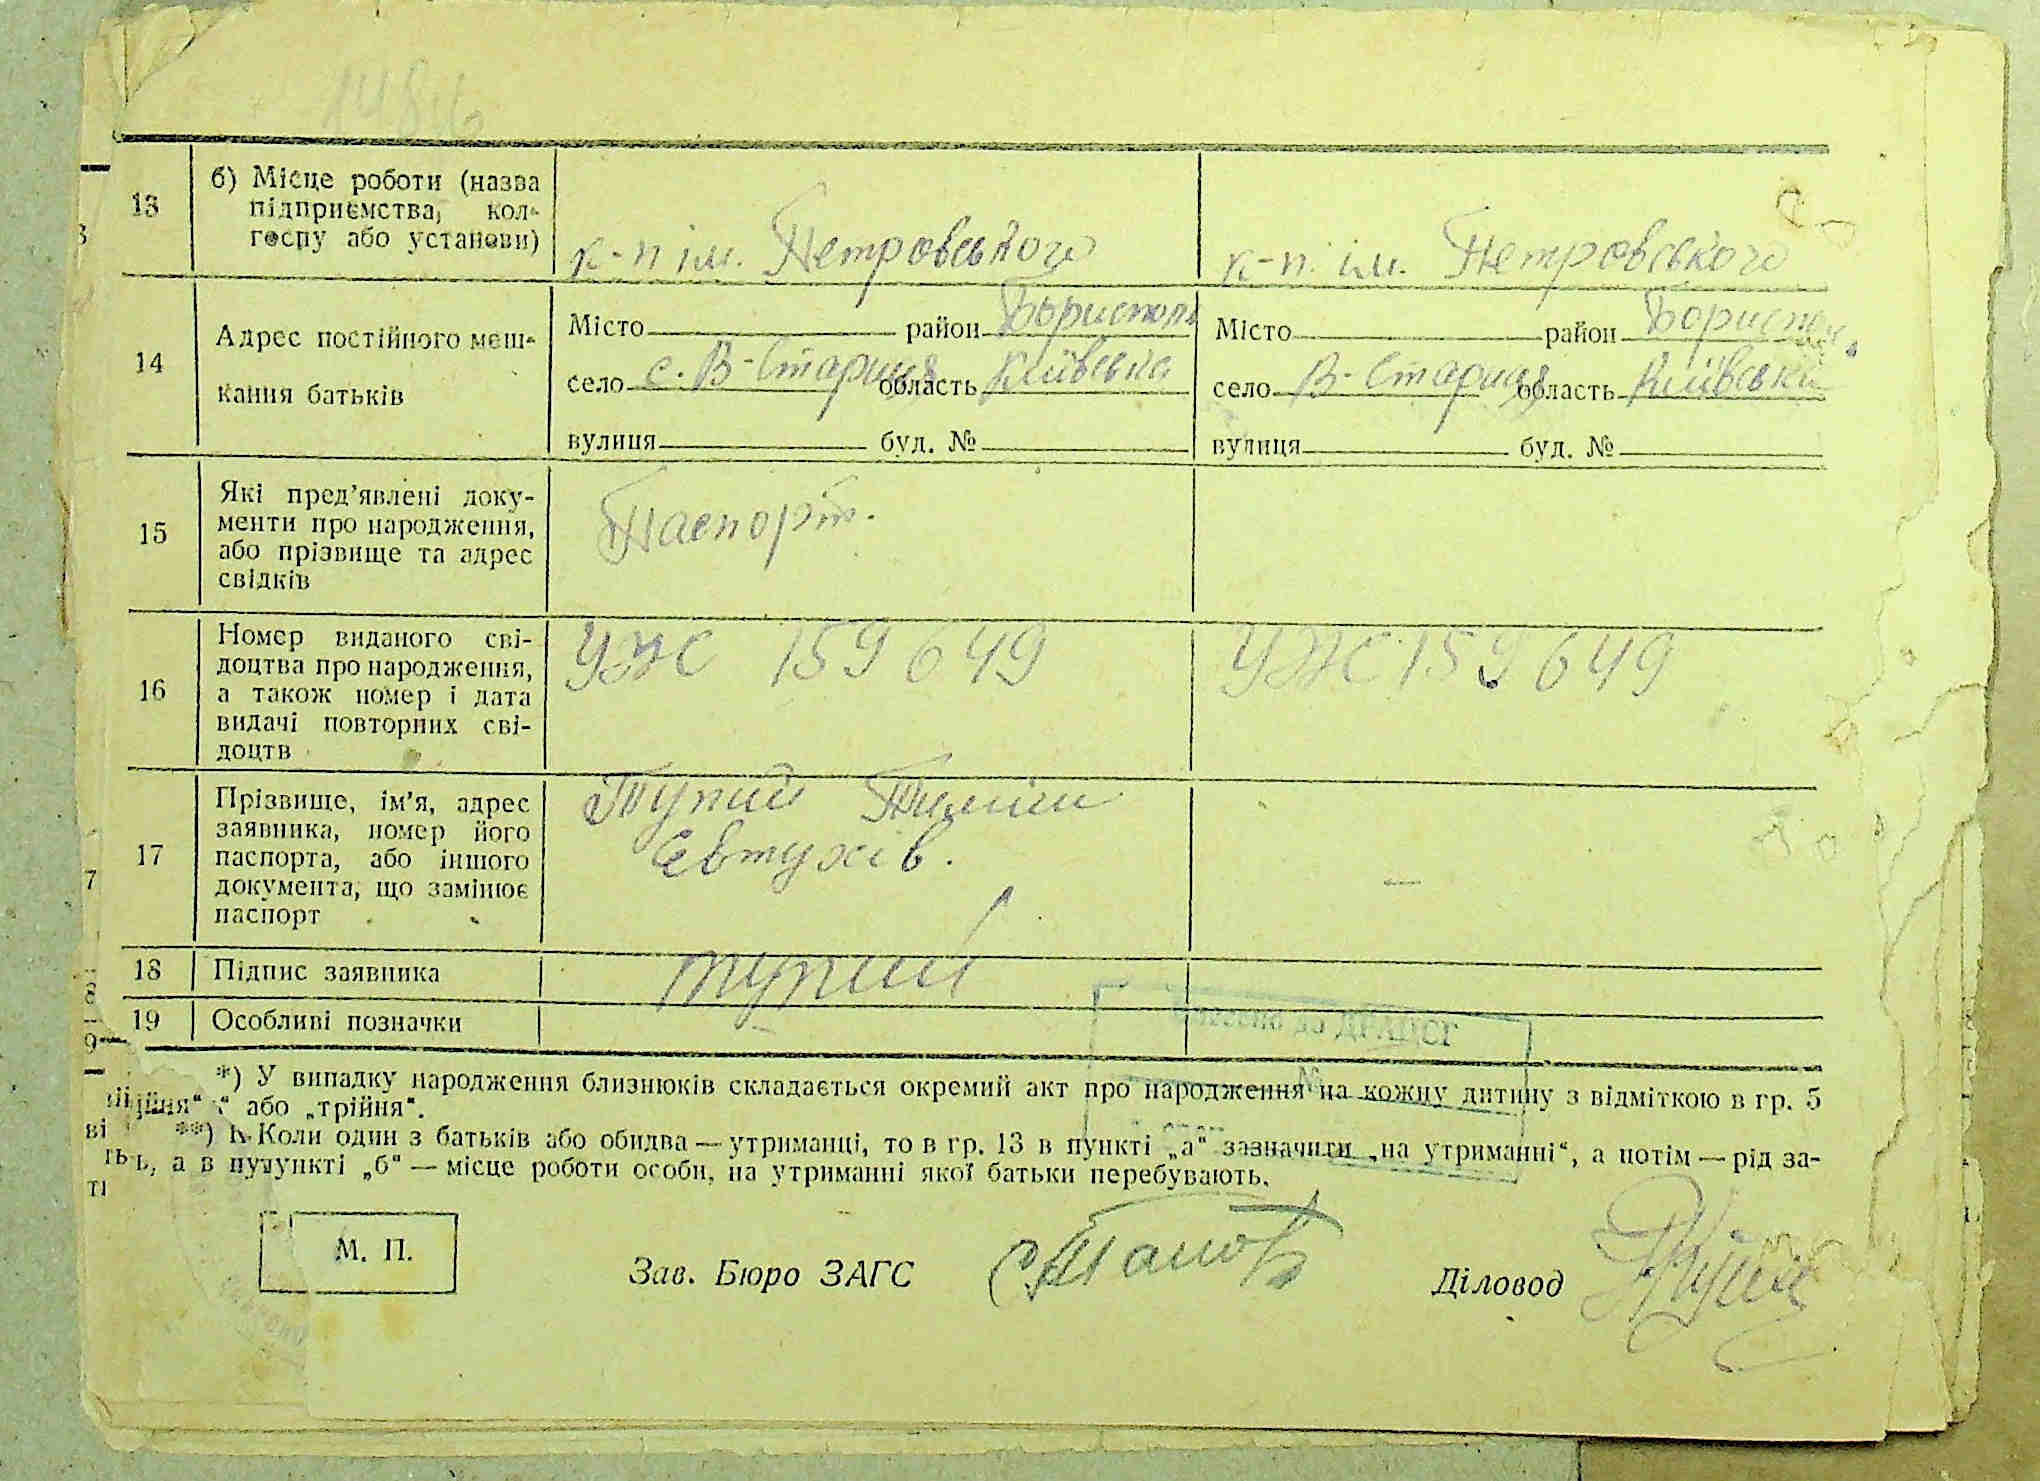 13
б) Місце роботи (назва
підприємства, кол-
госпу або установи)
к-п ім. Петровського
к-п. ім. Петровського
14
Адрес постійного меш-
кання батьків
Місто район Бориспол
село с. В-Стариця область Київська
вулиця буд. №
Місто район Бориспол.
село В-Стариця область Київська
вулиця буд. №
15
Які пред’явлені доку-
менти про народження,
або прізвище та адрес
свідків
Паспорт.
16
Номер виданого сві-
доцтва про народження,
а також номер і дата
видачі повторних сві-
доцтв
УЖ 159649
УЖ 159649
17
Прізвище, ім’я, адрес
заявника, номер його
паспорта, або іншого
документа, що замінює
паспорт
Тупий
Євтухів.
—
18
Підпис заявника
Тупий
19
Особливі позначки
—
Внесено до ДРАЦСГ
№
*) У випадку народження близнюків складається окремий акт про народження на кожну дитину з відміткою в гр. 5
або „трійня“.
**) Коли один з батьків або обидва — утриманці, то в гр. 13 в пункті „а“ зазначити „на утриманні“, а потім — рід за-
а в пункті „б“ — місце роботи особи, на утриманні якої батьки перебувають.
М. П.
Зав. Бюро ЗАГС
Діловод